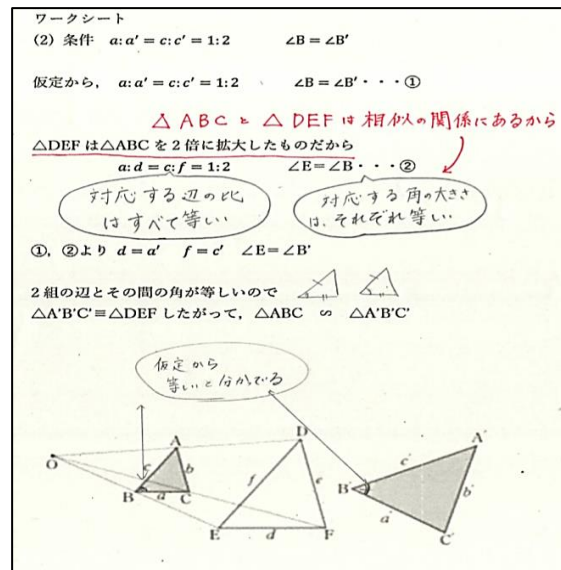 ワークシート
(2) 条件 a:a′=c:c′=1:2 ∠B=∠B′
仮定から, a:a′=c:c′=1:2 ∠B=∠B′・・・①
△ABCと△DEFは相似の関係にあるから
△DEFは△ABCを2倍に拡大したものだから
a:d=c:f=1:2 ∠E=∠B・・・②
対応する辺の比
はすべて等しい
対応する角の大きさ
は、それぞれ等しい
①, ②より d=a′ f=c′ ∠E=∠B′
2組の辺とその間の角が等しいので
△A'B'C'≡△DEF したがって, △ABC ∽ △A'B'C'
仮定から
等しいと分かってる
O
A
c
b
B
a
C
D
f
e
E
d
F
A'
c'
B'
b'
a'
C'